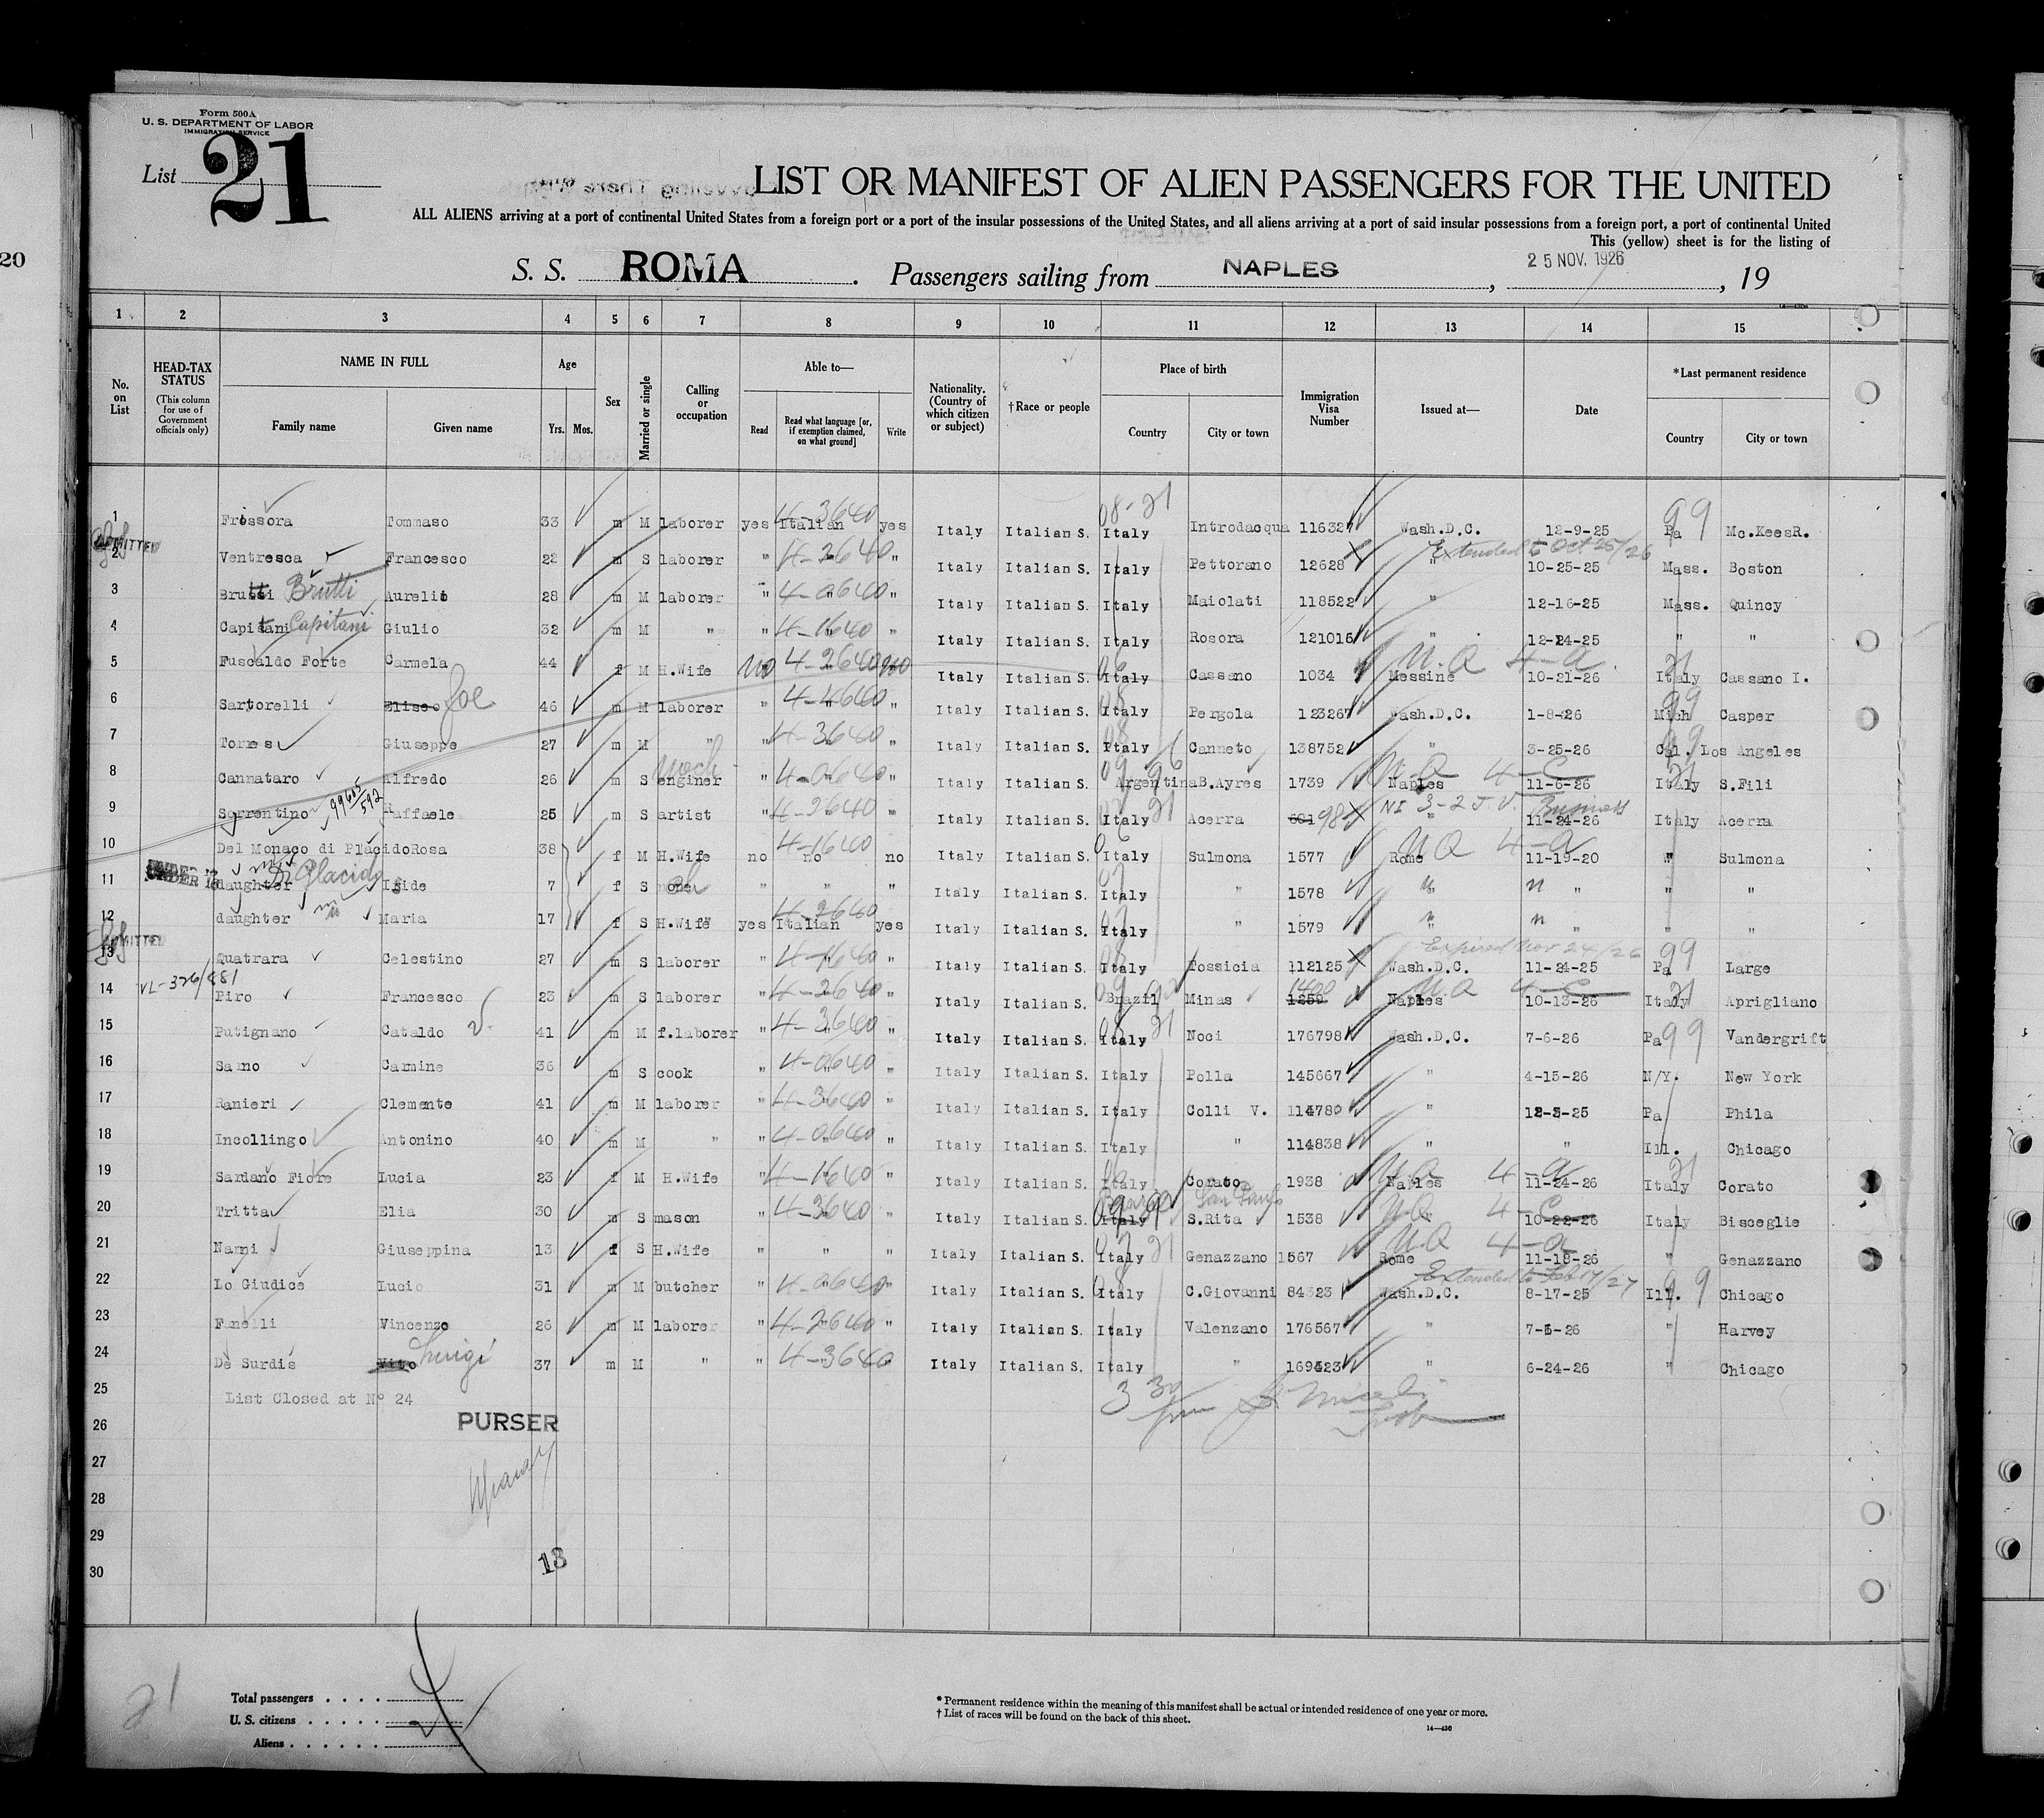 20
Form 500A
U. S. DEPARTMENT OF LABOR
IMMIGRATION SERVICE
List 21
LIST OR MANIFEST OF ALIEN PASSENGERS FOR THE UNITED
ALL ALIENS arriving at a port of continental United States from a foreign port or a port of the insular possessions of the United States, and all aliens arriving at a port of said insular possessions from a foreign port, a port of continental United
This (yellow) sheet is for the listing of
S. S. ROMA. Passengers sailing from NAPLES, 25 NOV. 1926, 19
1 2 3 4 5 6 7 8 9 10 11 12 13 14 15
No. on List HEAD-TAX STATUS (This column for use of Government officials only) NAME IN FULL Family name Given name Age Yrs. Mos. Sex Married or single Calling or occupation Able to— Read Read what language [or, if exemption claimed, on what ground] Write Nationality. (Country of which citizen or subject) †Race or people Place of birth Country City or town Immigration Visa Number Issued at— Date *Last permanent residence Country City or town
1 Frossora Tommaso 33 m M laborer yes Italian 4-3640 yes Italy Italian S. 08-21 Italy Introdacqua 116327 Wash.D.C. 12-9-25 Pa 99 Mc.KeesR.
ADMITTED
2 Ventresca Francesco 22 m S laborer " 4-2640 " Italy Italian S. Italy Pettorano 12628 " Extended to Oct 25/26 10-25-25 Mass. Boston
3 Brutti Brutti Aurelio 28 m M laborer " 4-0640 " Italy Italian S. Italy Maiolati 118522 " 12-16-25 Mass. Quincy
4 Capitani Capitani Giulio 32 m M " " 4-1640 " Italy Italian S. Italy Rosora 121016 " 12-24-25 " "
5 Fuscaldo Forte Carmela 44 f M H.Wife No 4-2640 No Italy Italian S. Italy Cassano 1034 Messine 10-21-26 Italy 21 Cassano I.
6 Sartorelli Eliseo Joe 46 m M laborer " 4-4640 " Italy Italian S. 08 Italy Pergola 123267 Wash.D.C. 1-8-26 Mich 99 Casper
7 Torres Giuseppe 27 m M " " 4-3640 " Italy Italian S. Italy Canneto 138752 " 3-25-26 Cal. Los Angeles
8 Cannataro Alfredo 26 m S enginer " 4-0640 " Italy Italian S. Argentina 96 B.Ayres 1739 Naples 4-C 11-6-26 Italy 21 S.Fili
9 Sorrentino 99603/592 Raffaele 25 m S artist " 4-2640 " Italy Italian S. Italy 21 Acerra 601 98 NI 3-2 J.V. Business " 11-24-26 Italy Acerra
10 Del Monaco di Placido Rosa 38 f M H.Wife no no 4-1640 no Italy Italian S. Italy Sulmona 1577 Rome 4-a 11-19-20 " Sulmona
UNDER 16
11 daughter Di Placido Iside 7 f S none ch " " " Italy Italian S. Italy " 1578 " " " "
12 daughter Maria 17 f S H.Wife yes Italian 4-2640 yes Italy Italian S. Italy " 1579 " " " "
ADMITTED
13 Quatrara Celestino 27 m S laborer " 4-1640 " Italy Italian S. Italy Fossicia 112125 Wash.D.C. Expired Nov 24/26 11-24-25 Pa 99 Large
VL-326/881
14 Piro Francesco 23 m S laborer " 4-2640 " Italy Italian S. Brazil Minas 1259 1400 Naples 4-C 10-13-26 Italy 21 Aprigliano
15 Putignano Cataldo V. 41 m M f.laborer " 4-3640 " Italy Italian S. Italy 21 Noci 176798 Wash.D.C. 7-6-26 Pa 99 Vandergrift
16 Samno Carmine 36 m S cook " 4-0640 " Italy Italian S. Italy Polla 145667 " 4-15-26 N/Y. New York
17 Ranieri Clemente 41 m M laborer " 4-3640 " Italy Italian S. Italy Colli V. 114780 " 12-3-25 Pa Phila
18 Incollingo Antonino 40 m M " " 4-0640 " Italy Italian S. Italy " 114838 " " Ill. Chicago
19 Sardano Fiore Lucia 23 f M H.Wife " 4-1640 " Italy Italian S. Italy Corato 1938 Naples 4-a 11-24-26 Italy 21 Corato
20 Tritta Elia 30 m S mason " 4-3640 " Italy Italian S. Italy San Paulo S.Rita 1538 " 4-C 10-22-26 Italy Bisceglie
21 Narni Giuseppina 13 f S H.Wife " " " Italy Italian S. Italy 21 Genazzano 1567 Rome 4-a 11-18-26 " Genazzano
22 Lo Giudice Lucio 31 m M butcher " 4-0640 " Italy Italian S. 08 Italy C.Giovanni 84323 Wash.D.C. Extended to Feb 17/27 8-17-25 Ill. 99 Chicago
23 Fanelli Vincenzo 26 m M laborer " 4-2640 " Italy Italian S. Italy Valenzano 176567 " 7-6-26 " Harvey
24 De Surdis Vito Luigi 37 m M " " 4-3640 Italy Italian S. Italy " 169423 " 6-24-26 " Chicago
25 List Closed at Nº 24
26 PURSER
27
28
29
30
13
21
Total passengers
U. S. citizens
Aliens
*Permanent residence within the meaning of this manifest shall be actual or intended residence of one year or more.
†List of races will be found on the back of this sheet.
14—430